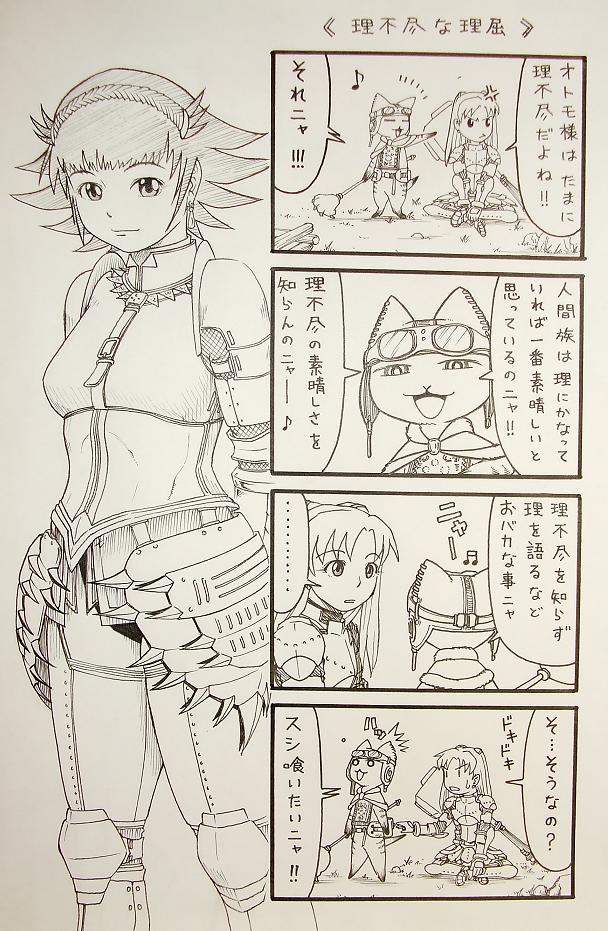 《 理不尽な理屈 》
オトモ様は たまに
理不尽だよね!!
それニャ!!!
♪
人間族は 理にかなって
いれば一番素晴しいと
思っているのニャ!!
理不尽の素晴しさを
知らんのニャ――♪
理不尽を知らず
理を語るなど
おバカな事ニャ
ニャー♬
…………
そ…そうなの?
ドキドキ
バッ
スシ喰いたいニャ!!